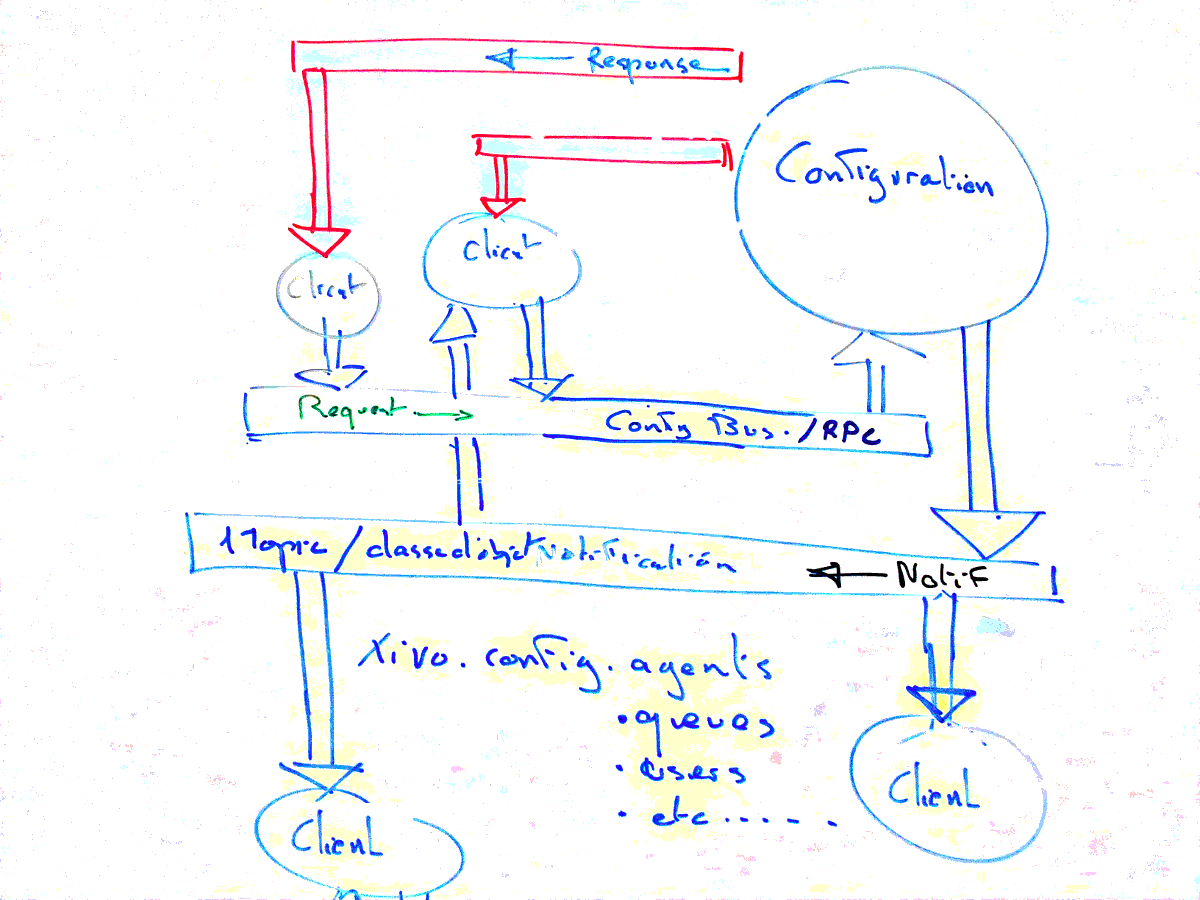 Response
Configuration
Client
Client
Request
Config Bus. / RPC
1 Topic / classe d'objet Notification
Notif
Xivo. config. agents
. queues
. users
. etc ......
Client
Client